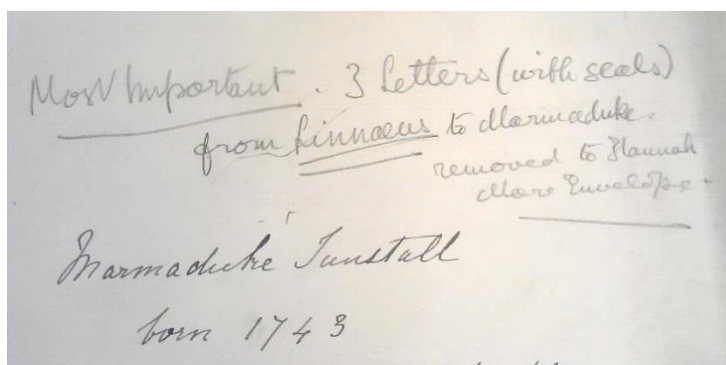 Most Important. 3 Letters (with seals)
from Linnaeus to Marmaduke.
removed to Hannah
More Envelope.
Marmaduke Tunstall
born 1743